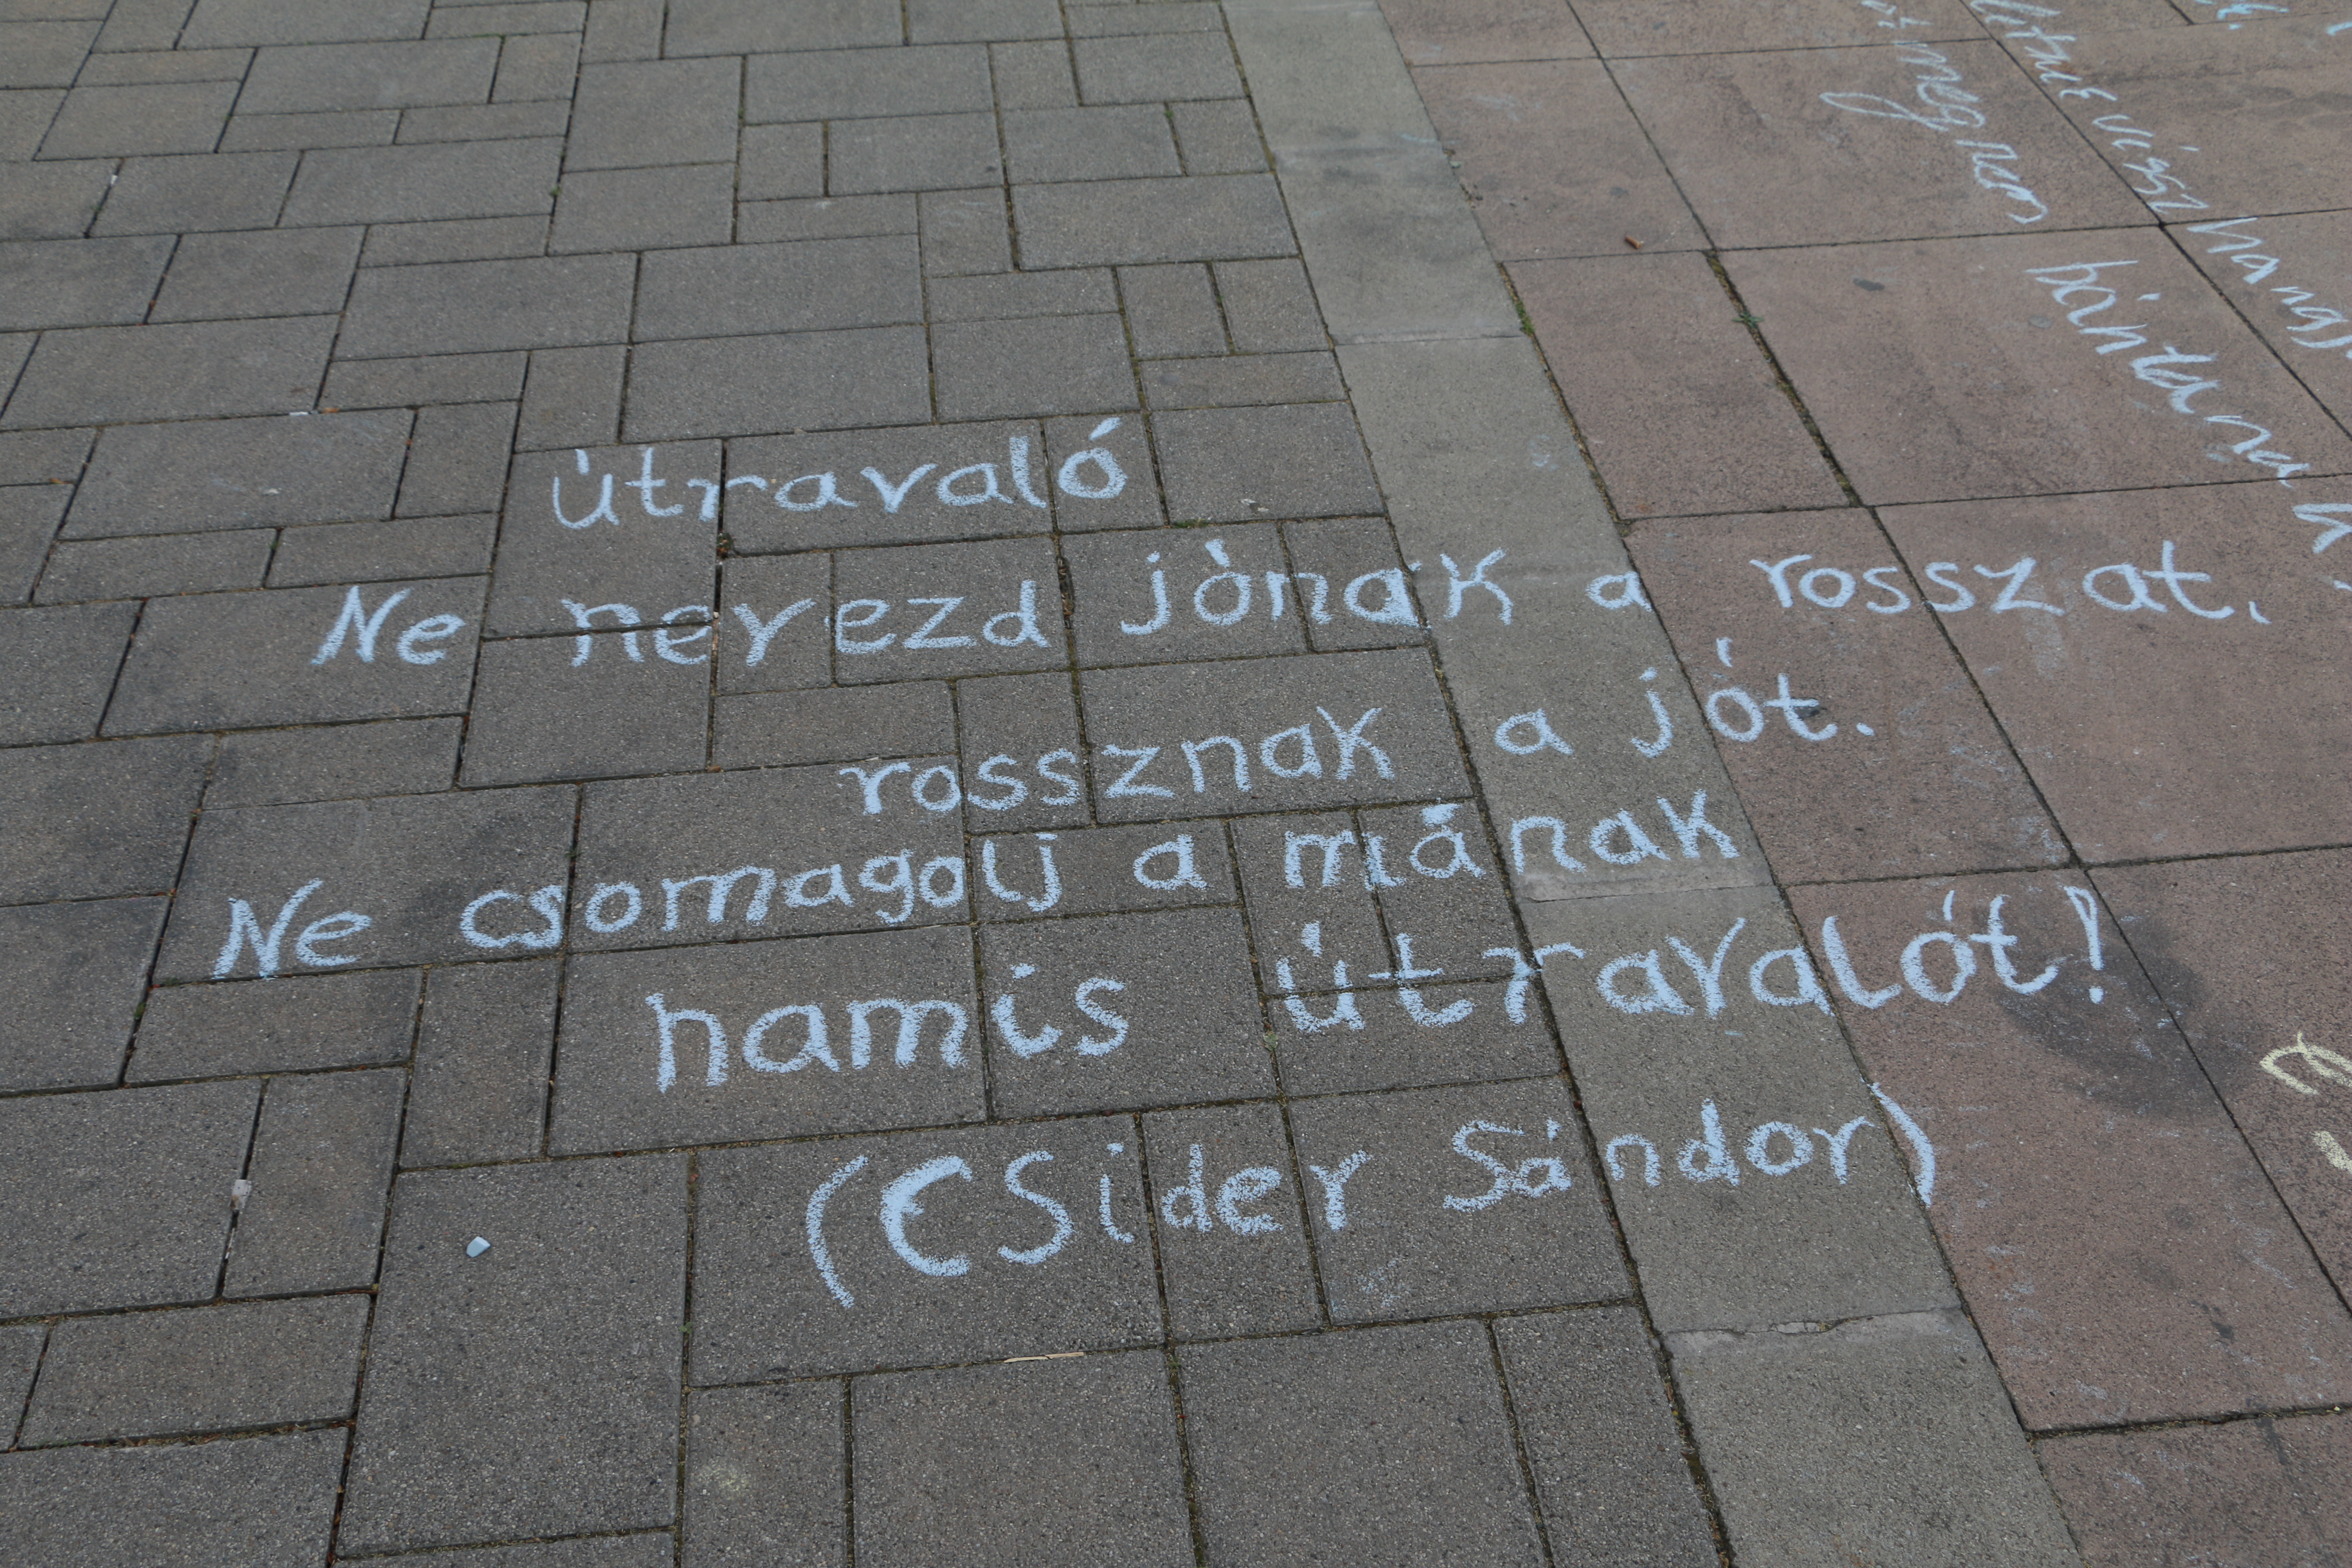 útravaló
Ne nevezd jónak a rosszat,
rossznak a jót.
Ne csomagolj a mának
hamis útravalót!
(CSider Sándor)
meg nem
bántanak